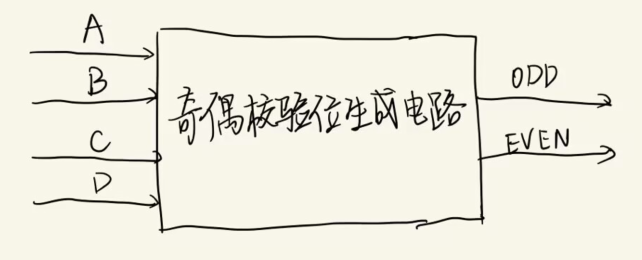 A
B
C
D
奇偶校验位生成电路
ODD
EVEN